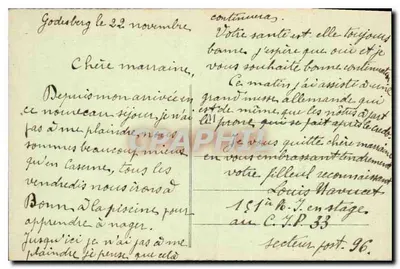 Godesberg le 22 novembre
Chère marraine,
Depuis mon arrivée en
ce nouveau séjour, je n'ai
pas à me plaindre, nous
sommes beaucoup mieux
qu'en caserne, tous les
vendredis nous irons à
Bonn, à la piscine, pour
apprendre à nager.
Jusqu'ici je n'ai pas à me
plaindre je pense que cela
continuera.
Votre santé est elle toujours
bonne j'espère que oui et je
vous souhaite bonne continuation
Ce matin, j'ai assisté à une
grand messe allemande qui
est de même que les nôtres à part
le prone, qui se fait
Je vous quitte chère marraine
en vous embrassant tendrement
votre filleul reconnaissant
Louis
151e R.I. en stage
au C.I.P. 33
secteur post. 96.
CARTOP